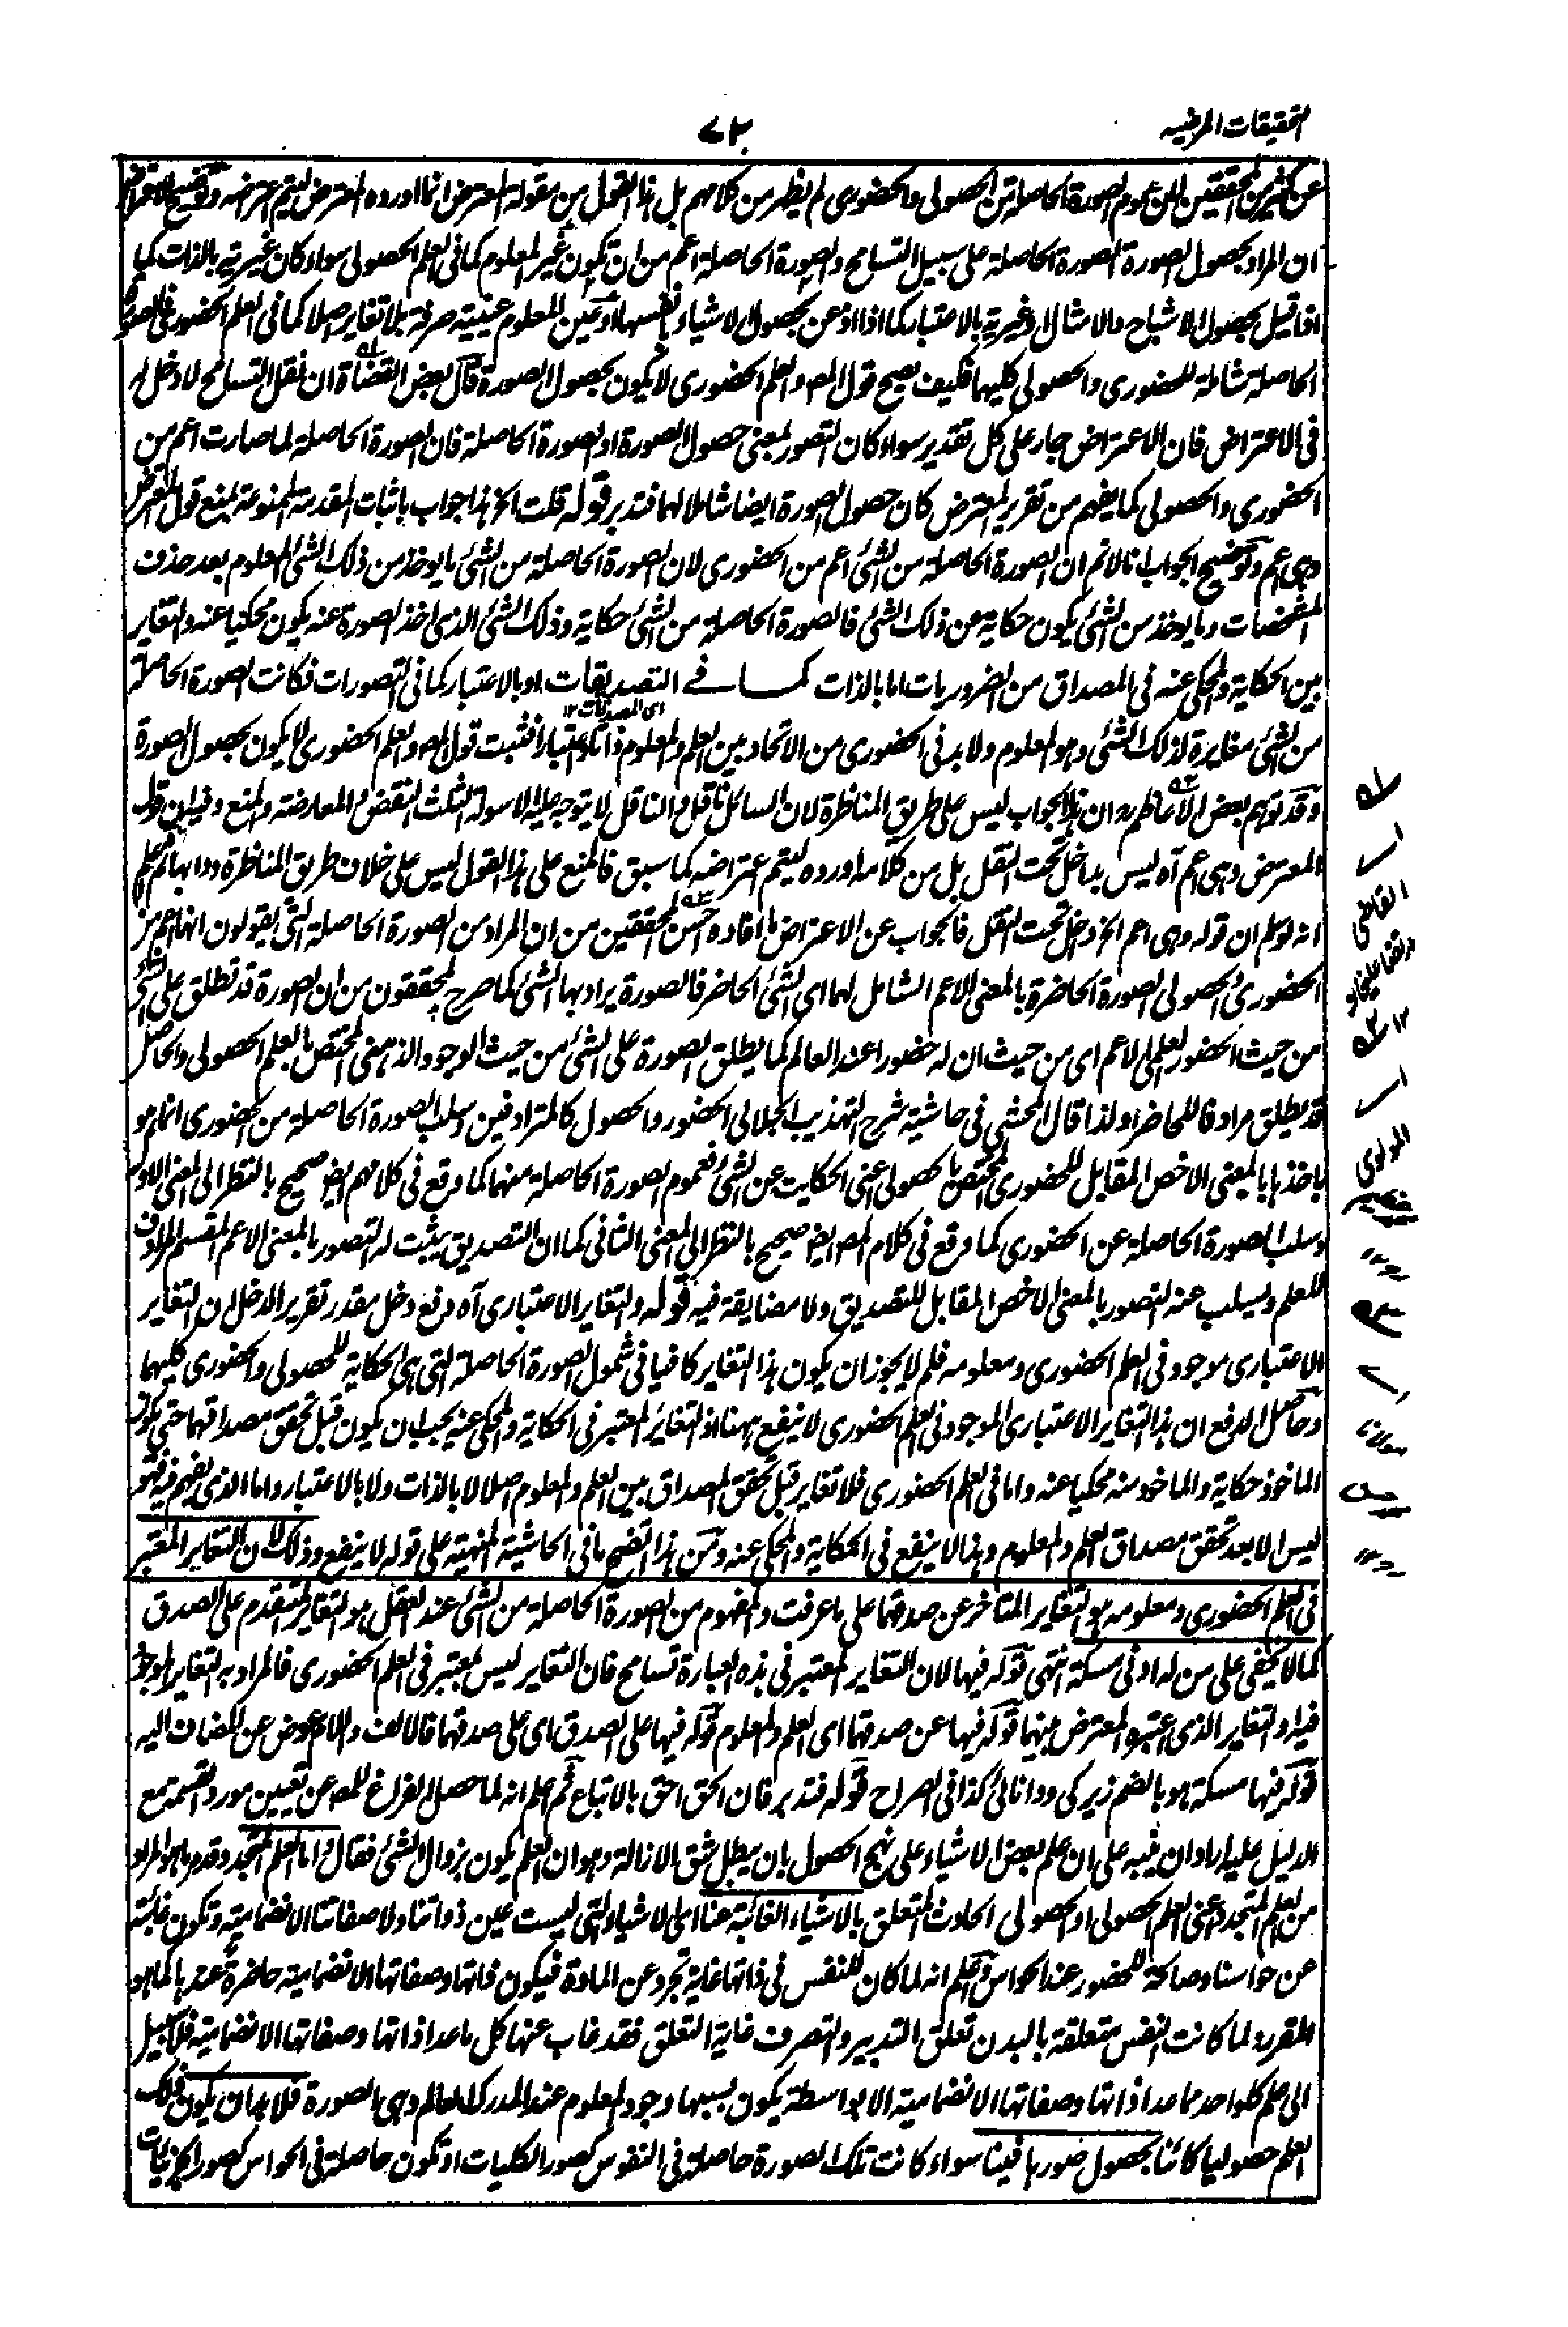 التحقيقات المرضيه
٧٢
عن كثير من المحققين لان عموم الصورة الحاصلة من الحصولى والحضورى لم يظهر من كلامهم بل هذا القول من مقولة المعترض انما اورده المعترض ليتم اعتراضه وتوضيح الاعتراض
ان المراد بحصول الصورة الصورة الحاصلة على سبيل التسامح والصورة الحاصلة اعم من ان تكون غير المعلوم كما فى العلم الحصولى سواء كان غيرية بالذات كما
اذا قيل بحصول الاشباح والامثال او غيرية بالاعتبار كما اذا اذعن بحصول الاشياء بانفسها او عين المعلوم عينية صرفة بلا تغاير اصلا كما فى العلم الحضورى فالصورة
الحاصلة شاملة للحضورى والحصولى كليهما فكيف يصح قول المص والعلم الحضورى لا يكون بحصول الصورة قال بعض القضاة ان نقل التسامح لا دخل له
فى الاعتراض فان الاعتراض جار على كل تقدير سواء كان التصور بمعنى حصول الصورة او الصورة الحاصلة فان الصورة الحاصلة لما صارت اعم من
الحضورى والحصولى كما يفهم من تقرير المعترض كان حصول الصورة ايضا شاملا لهما فتدبر قوله قلت الخ هذا جواب باثبات المقدمة الممنوعة بمنع قول المعترض
وهى اعم وتوضيح الجواب انا لانم ان الصورة الحاصلة من الشئ اعم من الحضورى لان الصورة الحاصلة من الشئ ما يوخذ من ذلك الشئ المعلوم بعد حذف
المشخصات وما يوخذ من الشئ يكون حكاية عن ذلك الشئ فالصورة الحاصلة من الشئ حكاية وذلك الشئ الذى اخذ الصورة عنه يكون محكيا عنه والتغاير
بين الحكاية والمحكى عنه فى المصداق من الضروريات اما بالذات كما فى التصديقات او بالاعتبار كما فى التصورات فكانت الصورة الحاصلة
اى المصدقات ١٢
من الشئ مغايرة لذلك الشئ وهو المعلوم ولا بد فى الحضورى من الاتحاد بين العلم والمعلوم ذاتا واعتبارا فثبت قول المص والعلم الحضورى لا يكون بحصول الصورة
وقد توهم بعض الاعاظم رد ان هذا الجواب ليس على طريق المناظرة لان السائل ناقل والناقل لا يتوجه عليه الاسولة الثلث النقض والمعارضة والمنع وفيه ان قول
المعترض وهى اعم آه ليس بداخل تحت النقل بل من كلامه اورده ليتم اعتراضه كما سبق فالمنع على هذا القول ليس على خلاف طريق المناظرة ودابها ثم اعلم
انه لو سلم ان قوله وهى اعم الخ دخل تحت النقل فالجواب عن الاعتراض ما افاده احسن المحققين من ان المراد من الصورة الحاصلة التى يقولون انها اعم من
الحضورى والحصولى الصورة الحاضرة بالمعنى الاعم الشامل لهما اى الشئ الحاضر فالصورة يراد بها الشئ كما صرح به المحققون من ان الصورة قد تطلق على الشئ
من حيث الحضور العلمى الاعم اى من حيث ان له حضورا عند العالم كما يطلق الصورة على الشئ من حيث الوجود الذهنى المختص بالعلم الحصولى والحاصل
قد يطلق مرادفا للحاضر ولذا قال المحشى فى حاشية شرح التهذيب الجلالى الحضور والحصول كالمترادفين وسلب الصورة الحاصلة من الحضورى انما هو
باخذها بالمعنى الاخص المقابل للحضورى المختص بالحصولى اعنى الحكاية عن الشئ فعموم الصورة الحاصلة منهما كما وقع فى كلامهم ايض صحيح بالنظر الى المعنى الاول
وسلب الصورة الحاصلة عن الحضورى كما وقع فى كلام المص ايض صحيح بالنظر الى المعنى الثانى كما ان التصديق يثبت له التصور بالمعنى الاعم المقسم المرادف
للعلم ويسلب عنه التصور بالمعنى الاخص المقابل للتصديق ولا مضايقة فيه قوله والتغاير الاعتبارى آه دفع دخل مقدر تقرير الدخل ان التغاير
الاعتبارى موجود فى العلم الحضورى ومعلومه فلم لا يجوز ان يكون هذا التغاير كافيا فى شمول الصورة الحاصلة التى هى الحكاية للحصولى والحضورى كليهما
وحاصل الدفع ان هذا التغاير الاعتبارى الموجود فى العلم الحضورى لا ينفع ههنا اذ التغاير المعتبر فى الحكاية والمحكى عنه يجب ان يكون قبل تحقق مصداقهما حتى يكون
الماخوذ حكاية والماخوذ منه محكيا عنه واما فى العلم الحضورى فلا تغاير قبل تحقق المصداق بين العلم والمعلوم اصلا لا بالذات ولا بالاعتبار واما الذى يفهم فيه فهو
ليس الا بعد تحقق مصداق العلم والمعلوم وهذا لا ينفع فى الحكاية والمحكى عنه ومن هذا اتضح ما فى الحاشية المنهية على قوله لا ينفع وذلك لان التغاير المعتبر
فى العلم الحضورى ومعلومه هو التغاير المتاخر عن صدقهما على ما عرفت والمفهوم من الصورة الحاصلة من الشئ عند العقل هو التغاير المتقدم على الصدق
كما لا يخفى على من له ادنى مسكة انتهى قوله فيها لان التغاير المعتبر فى هذه العبارة تسامح فان التغاير ليس بمعتبر فى العلم الحضورى فالمراد به التغاير الموجود
فيه او التغاير الذى اعتبره المعترض بينهما قوله فيها عن صدقهما اى العلم والمعلوم قوله فيها على الصدق اى على صدقهما فالالف واللام عوض عن المضاف اليه
قوله فيها مسكة هو بالضم زيركى ودانائى كذا فى الصراح قوله فتدبر فان الحق احق بالاتباع ثم اعلم انه لما حصل الفراغ للمص عن تعيين مورد القسمة مع
الدليل عليه اراد ان ينبه على ان علم بعض الاشياء على نهج الحصول بان يبطل شق الازالة وهو ان العلم يكون بزوال الشئ فقال واما العلم المتجدد وقد مر ما هو المراد
من العلم المتجدد اعنى العلم الحصولى او الحصولى الحادث المتعلق بالاشياء الغائبة عنا اى الاشياء التى ليست عين ذواتنا ولا صفاتنا الانضمامية وتكون غائبة
عن حواسنا وصالحة للحضور عند الحواس واعلم انه لما كان للنفس فى ذاتها غاية تجرد عن المادة فيكون ذاتها وصفاتها الانضمامية حاضرة عندها كما هو
المقرر ولما كانت النفس متعلقة بالبدن تعلق التدبير والتصرف غاية التعلق فقد غاب عنها كل ما عدا ذاتها وصفاتها الانضمامية فلا سبيل
الى علم كل واحد مما عدا ذاتها وصفاتها الانضمامية الا بواسطة يكون بسببها وجود المعلوم عند المدرك العالم وهى الصورة فلا بد ان يكون ذلك
العلم حصوليا كائنا بحصول صورها فينا سواء كانت تلك الصورة حاصلة فى النفوس كصور الكليات او تكون حاصلة فى الحواس كصور الجزئيات
القاضى
المولوى